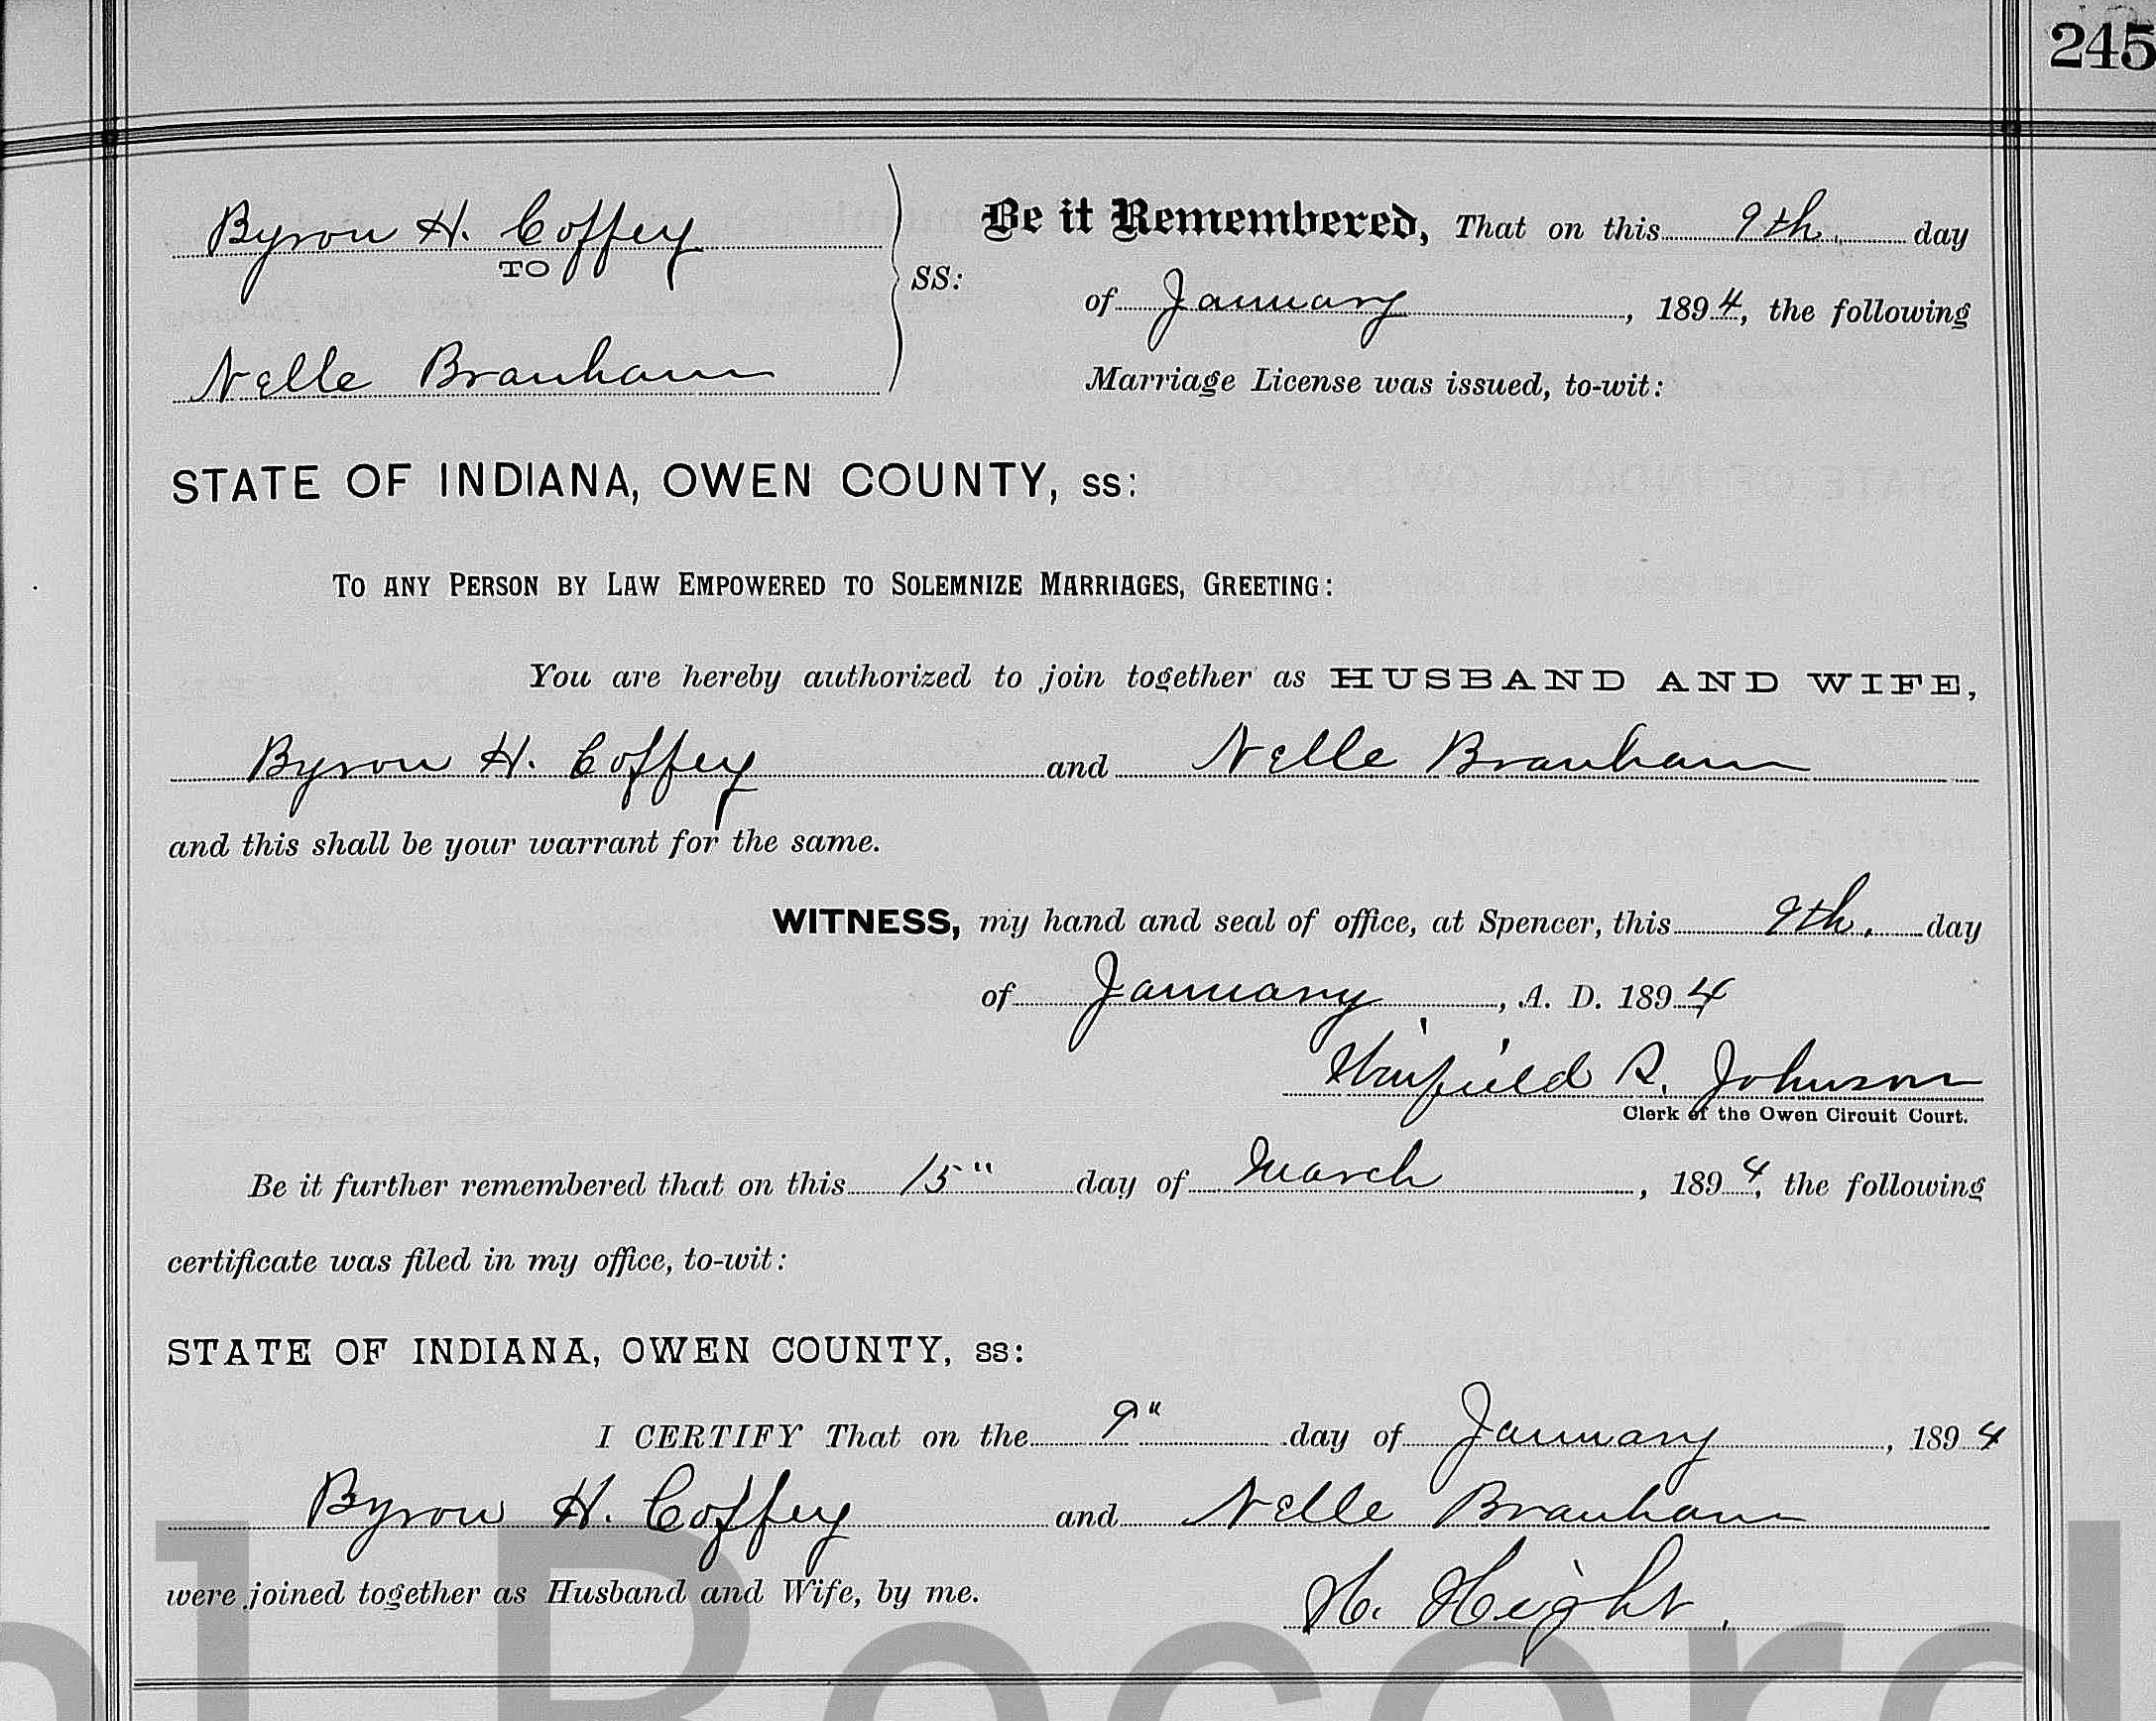 245
Byron H. Coffey
TO
Nelle Branham
SS:
Be it Remembered, That on this 9th. day
of January, 1894, the following
Marriage License was issued, to-wit:
STATE OF INDIANA, OWEN COUNTY, ss:
To any Person by Law Empowered to Solemnize Marriages, Greeting:
You are hereby authorized to join together as HUSBAND AND WIFE,
Byron H. Coffey and Nelle Branham
and this shall be your warrant for the same.
WITNESS, my hand and seal of office, at Spencer, this 9th. day
of January, A. D. 1894
Winfield R. Johnson
Clerk of the Owen Circuit Court.
Be it further remembered that on this 15" day of March, 1894, the following
certificate was filed in my office, to-wit:
STATE OF INDIANA, OWEN COUNTY, ss:
I CERTIFY That on the 9" day of January, 1894
Byron H. Coffey and Nelle Branham
were joined together as Husband and Wife, by me.
H. Height.